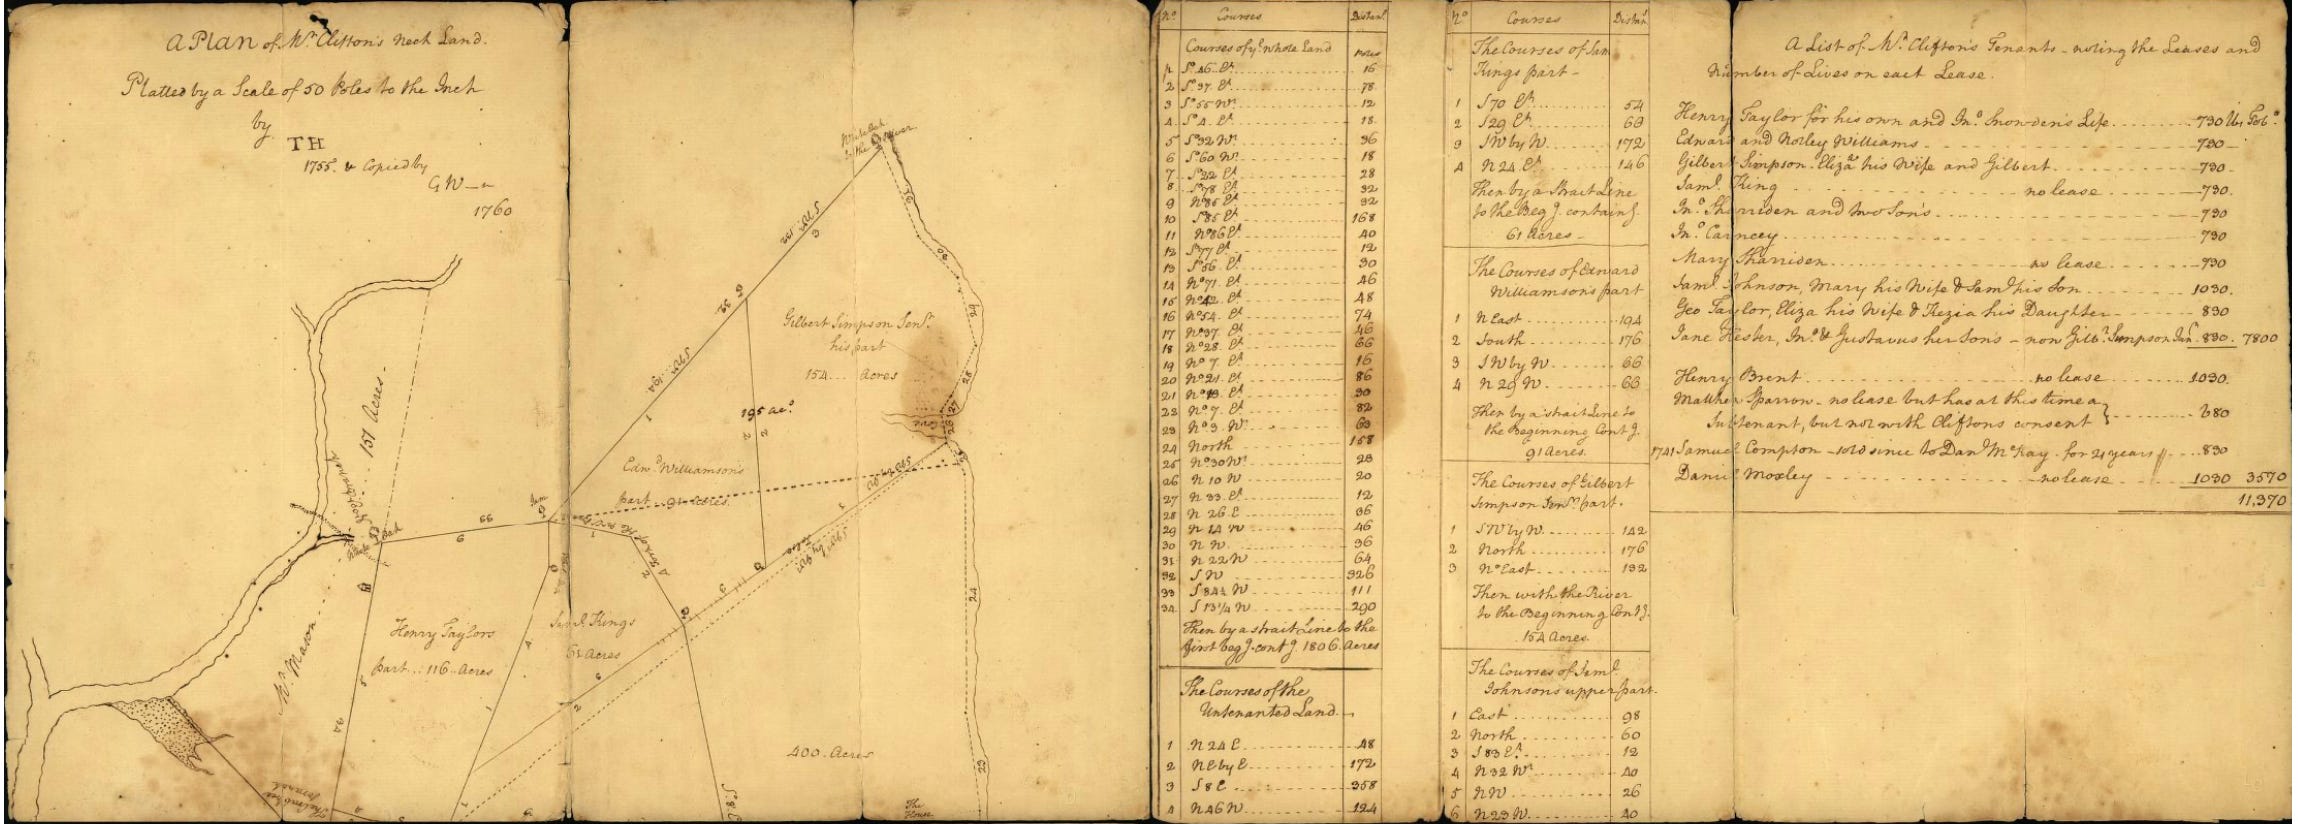 A Plan of Mr. Clifton's Neck Land.
Platted by a Scale of 50 Poles to the Inch
by
TH
1755. & Copied by
GW
1760
White Oak
by the River
S45W 132
3
25
32
26
Gilbert Simpson Senr.
his part
154 Acres
S45W 194
1
195 acs.
2
2
28
27
26
Edwd. Williamson's
part 91 Acres
151 Acres
99
6
1
2
3
Henry Taylors
part 116 Acres
Saml. Kings
61 Acres
Mr. Mason
400 Acres
24
23
94
5
4
1
The
House
No. Courses Distance
Courses of ye. whole Land Poles
1 So. 46 Et. 16
2 So. 37 Et. 78
3 So. 55 Wt. 12
4 So. 4 Et. 18
5 So. 32 Wt. 36
6 So. 60 Wt. 18
7 So. 22 Et. 28
8 So. 78 Et. 32
9 No. 85 Et. 32
10 So. 85 Et. 168
11 No. 86 Et. 40
12 So. 77 Et. 12
13 So. 56 Et. 30
14 No. 71 Et. 46
15 No. 42 Et. 48
16 No. 54 Et. 74
17 No. 37 Et. 46
18 No. 28 Et. 66
19 No. 7 Et. 16
20 No. 21 Et. 86
21 No. 19 Et. 30
22 No. 7 Et. 82
23 No. 3 Wt. 63
24 North 158
25 No. 30 Wt. 28
26 N 10 W 20
27 N 33 Et. 12
28 N 26 E 36
29 N 14 W 46
30 N W 36
31 N 22 W 64
32 S W 326
33 S 84½ W 111
34 S 13¼ W 290
Then by a strait Line to the
first beg g. cont g. 1806 Acres
The Courses of the
Untenanted Land
1 N 24 E 48
2 NE by E 172
3 S 8 E 358
4 N 46 W 124
No. Courses Distan.
The Courses of Sam
Kings part
1 S 70 Et. 54
2 S 29 Et. 68
3 SW by W 172
4 N 24 Et. 146
Then by a Strait Line
to the Beg g. containg.
61 Acres
The Courses of Edward
Williamson's part
1 N East 194
2 South 176
3 SW by W 66
4 N 29 W 66
Then by a strait Line to
the Beginning Cont g.
91 Acres.
The Courses of Gilbert
Simpson Senr. part.
1 SW by W 142
2 North 176
3 No. East 132
Then with the River
to the Beginning Cont g.
154 Acres.
The Courses of Saml.
Johnsons upper part.
1 East 98
2 North 60
3 S 83 Et. 12
4 N 32 Wt. 40
5 NW 26
6 N 23 W 40
A List of Mr. Clifton's Tenants - noting the Leases and
Number of Lives on each Lease.
Henry Taylor for his own and Jno. Snowden's Life 730 lbs Tobo.
Edward and Notley Williams 730
Gilbert Simpson Eliza. his Wife and Gilbert 730
Saml. King no lease 730
Jno. Sharriden and two Sons 730
Jno. Carneey 730
Mary Sharriden no lease 730
Saml. Johnson, Mary his Wife & Saml. his Son 1030
Geo Taylor, Eliza his Wife & Kezia his Daughter 830
Jane Hester, Jno. & Gustavus her Sons - now Gilbt. Simpson Junr. 830 7800
Henry Brent no lease 1030
Matthew Sparrow - no lease but has at this time a
Subtenant, but not with Cliftons consent } 680
1741 Samuel Compton - sold since to Danl. McKay for 21 years 830
Daniel Moxley no lease 1030 3570
11,370